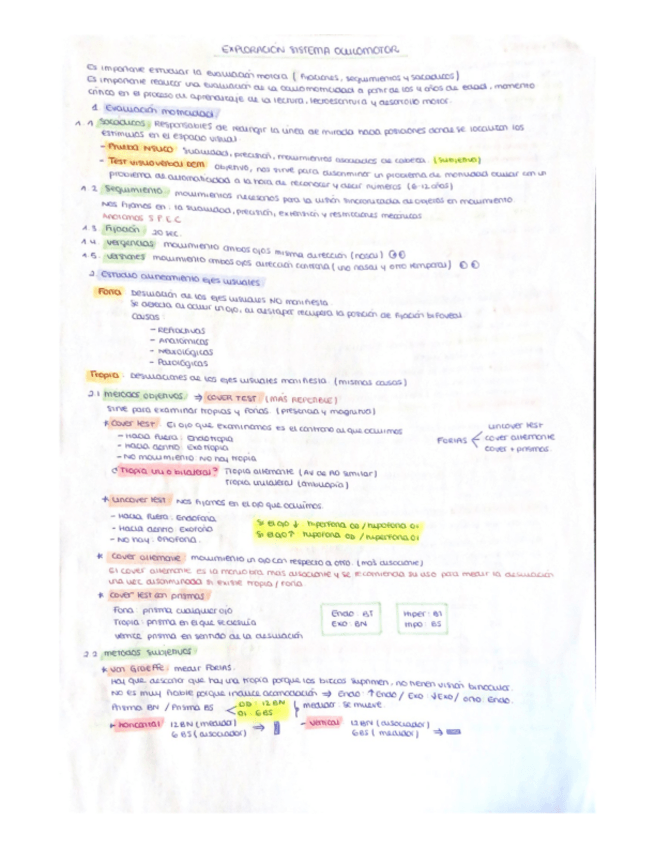 EXPLORACIÓN SISTEMA OCULOMOTOR
Es importante estudiar la evaluación motora (fijaciones, seguimientos y sacádicos)
Es importante realizar una evaluación de la oculomotricidad a partir de los 4 años de edad, momento
crítico en el proceso de aprendizaje de la lectura, lectoescritura y desarrollo motor.
1. Evaluación motricidad
1.1 Sacádicos: Responsables de redirigir la línea de mirada hacia posiciones donde se localizan los
estímulos en el espacio visual.
- Prueba NSUCO: suavidad, precisión, movimientos asociados de cabeza. (Subjetivo)
- Test visuoverbal DEM: objetivo, nos sirve para discriminar un problema de motilidad ocular con un
problema de automaticidad a la hora de reconocer y decir números (6-12 años)
1.2. Seguimiento: movimientos necesarios para la visión sincronizada de objetos en movimiento.
Nos fijamos en: la suavidad, precisión, extensión y restricciones mecánicas
Anotamos S P E C
1.3. Fijación: 20 sec.
1.4. Vergencias: movimiento ambos ojos misma dirección (nasal)
1.5. Versiones: movimiento ambos ojos dirección contraria (uno nasal y otro temporal)
2. Estudio alineamiento ejes visuales
Foria: Desviación de los ejes visuales NO manifiesta.
Se detecta al ocluir un ojo, al destapar recupera la posición de fijación bifoveal.
Causas:
- Refractivas
- Anatómicas
- Neurológicas
- Patológicas
Tropia: Desviaciones de los ejes visuales manifiesta (mismas causas)
2.1 Métodos objetivos: ⇒ COVER TEST (MÁS REPETIBLE)
Sirve para examinar tropias y forias (presencia y magnitud)
* Cover test: El ojo que examinamos es el contrario al que ocluimos
- Hacia fuera: Endotropia
- Hacia dentro: Exotropia
- No movimiento: No hay tropia
¿Tropia uni o bilateral? Tropia alternante (AV de AO similar)
Tropia unilateral (ambliopía)
FORIAS
uncover test
cover alternante
cover + prismas
* Uncover test: Nos fijamos en el ojo que ocluimos.
- Hacia fuera: Endoforia
- Hacia dentro: Exoforia
- No hay: Ortoforia.
Si el ojo ↓ hiperforia OD / hipoforia OI
Si el ojo ↑ hipoforia OD / hiperforia OI
* Cover alternante: movimiento un ojo con respecto a otro. (más disociante)
El cover alternante es la maniobra más disociante y se recomienda su uso para medir la desviación
una vez discriminada si existe tropia / foria.
* Cover test con prismas:
Foria: prisma cualquier ojo
Tropia: prisma en el que se desvía
vértice prisma en sentido de la desviación
Endo: BT
Exo: BN
Hiper: BI
Hipo: BS
2.2 Métodos subjetivos:
* Von Graeffe: medir FORIAS.
Hay que descartar que hay una tropia porque los bizcos suprimen, no tienen visión binocular.
No es muy fiable porque induce acomodación ⇒ Endo: ↑Endo / Exo: ↓Exo / Orto: Endo.
Prisma BN / Prisma BS
OD: 12 BN
OI: 6 BS
medidor: se mueve.
- Horizontal: 12 BN (medidor)
6 BS (disociador)
- Vertical: 12 BN (disociador)
6 BS (medidor)